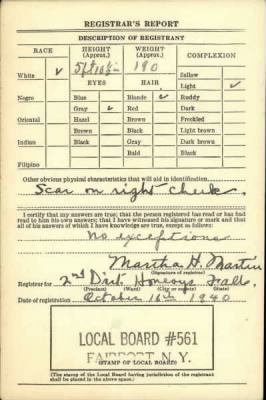 REGISTRAR'S REPORT
DESCRIPTION OF REGISTRANT
RACE HEIGHT (Approx.) WEIGHT (Approx.) COMPLEXION
White ✓ 5 ft 190 Sallow
EYES HAIR Light ✓
Negro Blue Blonde ✓ Ruddy
Gray ✓ Red Dark
Oriental Hazel Brown Freckled
Brown Black Light brown
Indian Black Gray Dark brown
Bald Black
Filipino
Other obvious physical characteristics that will aid in identification
Scar on right cheek.
I certify that my answers are true; that the person registered has read or has had read to him his own answers; that I have witnessed his signature or mark and that all of his answers of which I have knowledge are true, except as follows:
No exceptions
Martha H. Martin
(Signature of registrar)
Registrar for 2nd Dist. Honeoye Falls.
(Precinct) (Ward) (City or county) (State)
Date of registration October 16th 1940
LOCAL BOARD #561
FAIRPORT N.Y.
(STAMP OF LOCAL BOARD)
(The stamp of the Local Board having jurisdiction of the registrant shall be placed in the above space.)